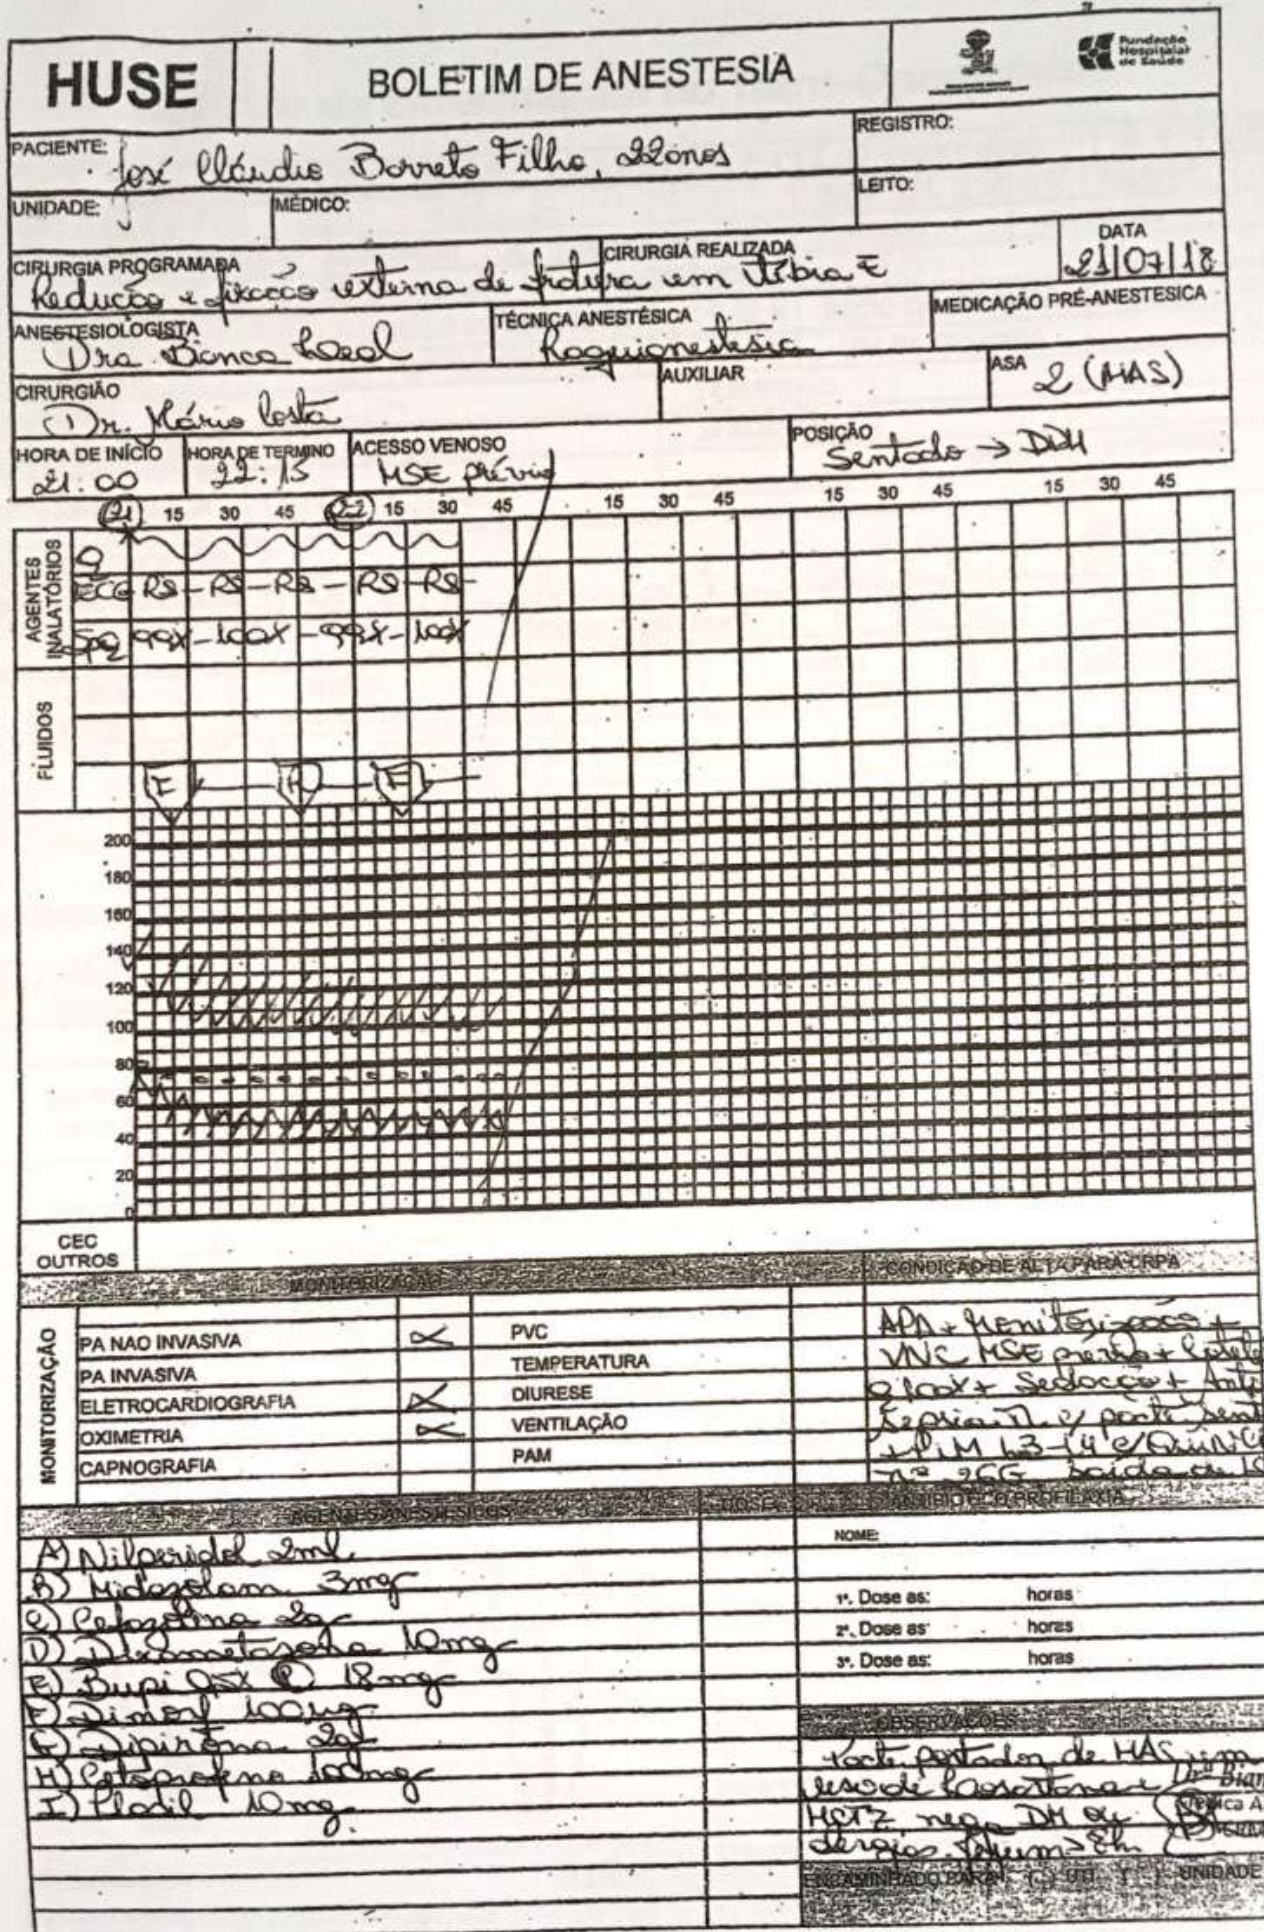 HUSE
BOLETIM DE ANESTESIA
Fundação
Hospitalar
de Saúde
PACIENTE: José Cláudio Barreto Filho, 22 anos
REGISTRO:
UNIDADE:
MÉDICO:
LEITO:
CIRURGIA PROGRAMADA
CIRURGIA REALIZADA
DATA
Redução e fixação externa de fratura em tíbia E
21/07/18
ANESTESIOLOGISTA
TÉCNICA ANESTÉSICA
MEDICAÇÃO PRÉ-ANESTESICA
Dra. Bianca Leal
Raquianestesia
CIRURGIÃO
AUXILIAR
ASA 2 (HAS)
Dr. Mário Costa
HORA DE INÍCIO
HORA DE TERMINO
ACESSO VENOSO
POSIÇÃO
21:00
22:15
MSE prévio
Sentado → DDH
21 15 30 45 22 15 30 45 15 30 45 15 30 45 15 30 45
AGENTES
INALATÓRIOS
ECG RS - RS - RS - RS - RS -
SPO2 99% - 100% - 99% - 100%
FLUIDOS
200
180
160
140
120
100
80
60
40
20
0
CEC
OUTROS
MONITORIZAÇÃO
CONDIÇÃO DE ALTA PARA CRPA
MONITORIZAÇÃO
PA NAO INVASIVA
PVC
PA INVASIVA
TEMPERATURA
ELETROCARDIOGRAFIA
DIURESE
OXIMETRIA
VENTILAÇÃO
CAPNOGRAFIA
PAM
APA + Monitorização +
VNC MSE prévio +
100% + Sedação +
c/ pacte
L3-L4 c/
nº 26G saída de
AGENTES ANESTESICOS
DOSE
ANTIBIOTICO PROFILAXIA
A) Nilperidol 2ml
B) Midazolam 3mg
C) Cefazolina 2g
D) Dexametasona 10mg
E) Bupi 0,5% P 18mg
F) Dimorf 100µg
G) Dipirona 2g
H) Cetoprofeno 100mg
I) Plasil 10mg
NOME:
1ª. Dose as: horas
2ª. Dose as horas
3ª. Dose as: horas
OBSERVAÇÕES
Pacte portador de HAS em
uso de Losartana e
HCTZ, nega DM ou
alergias. Jejum > 8h
ENCAMINHADO PARA: ( ) UTI ( ) UNIDADE